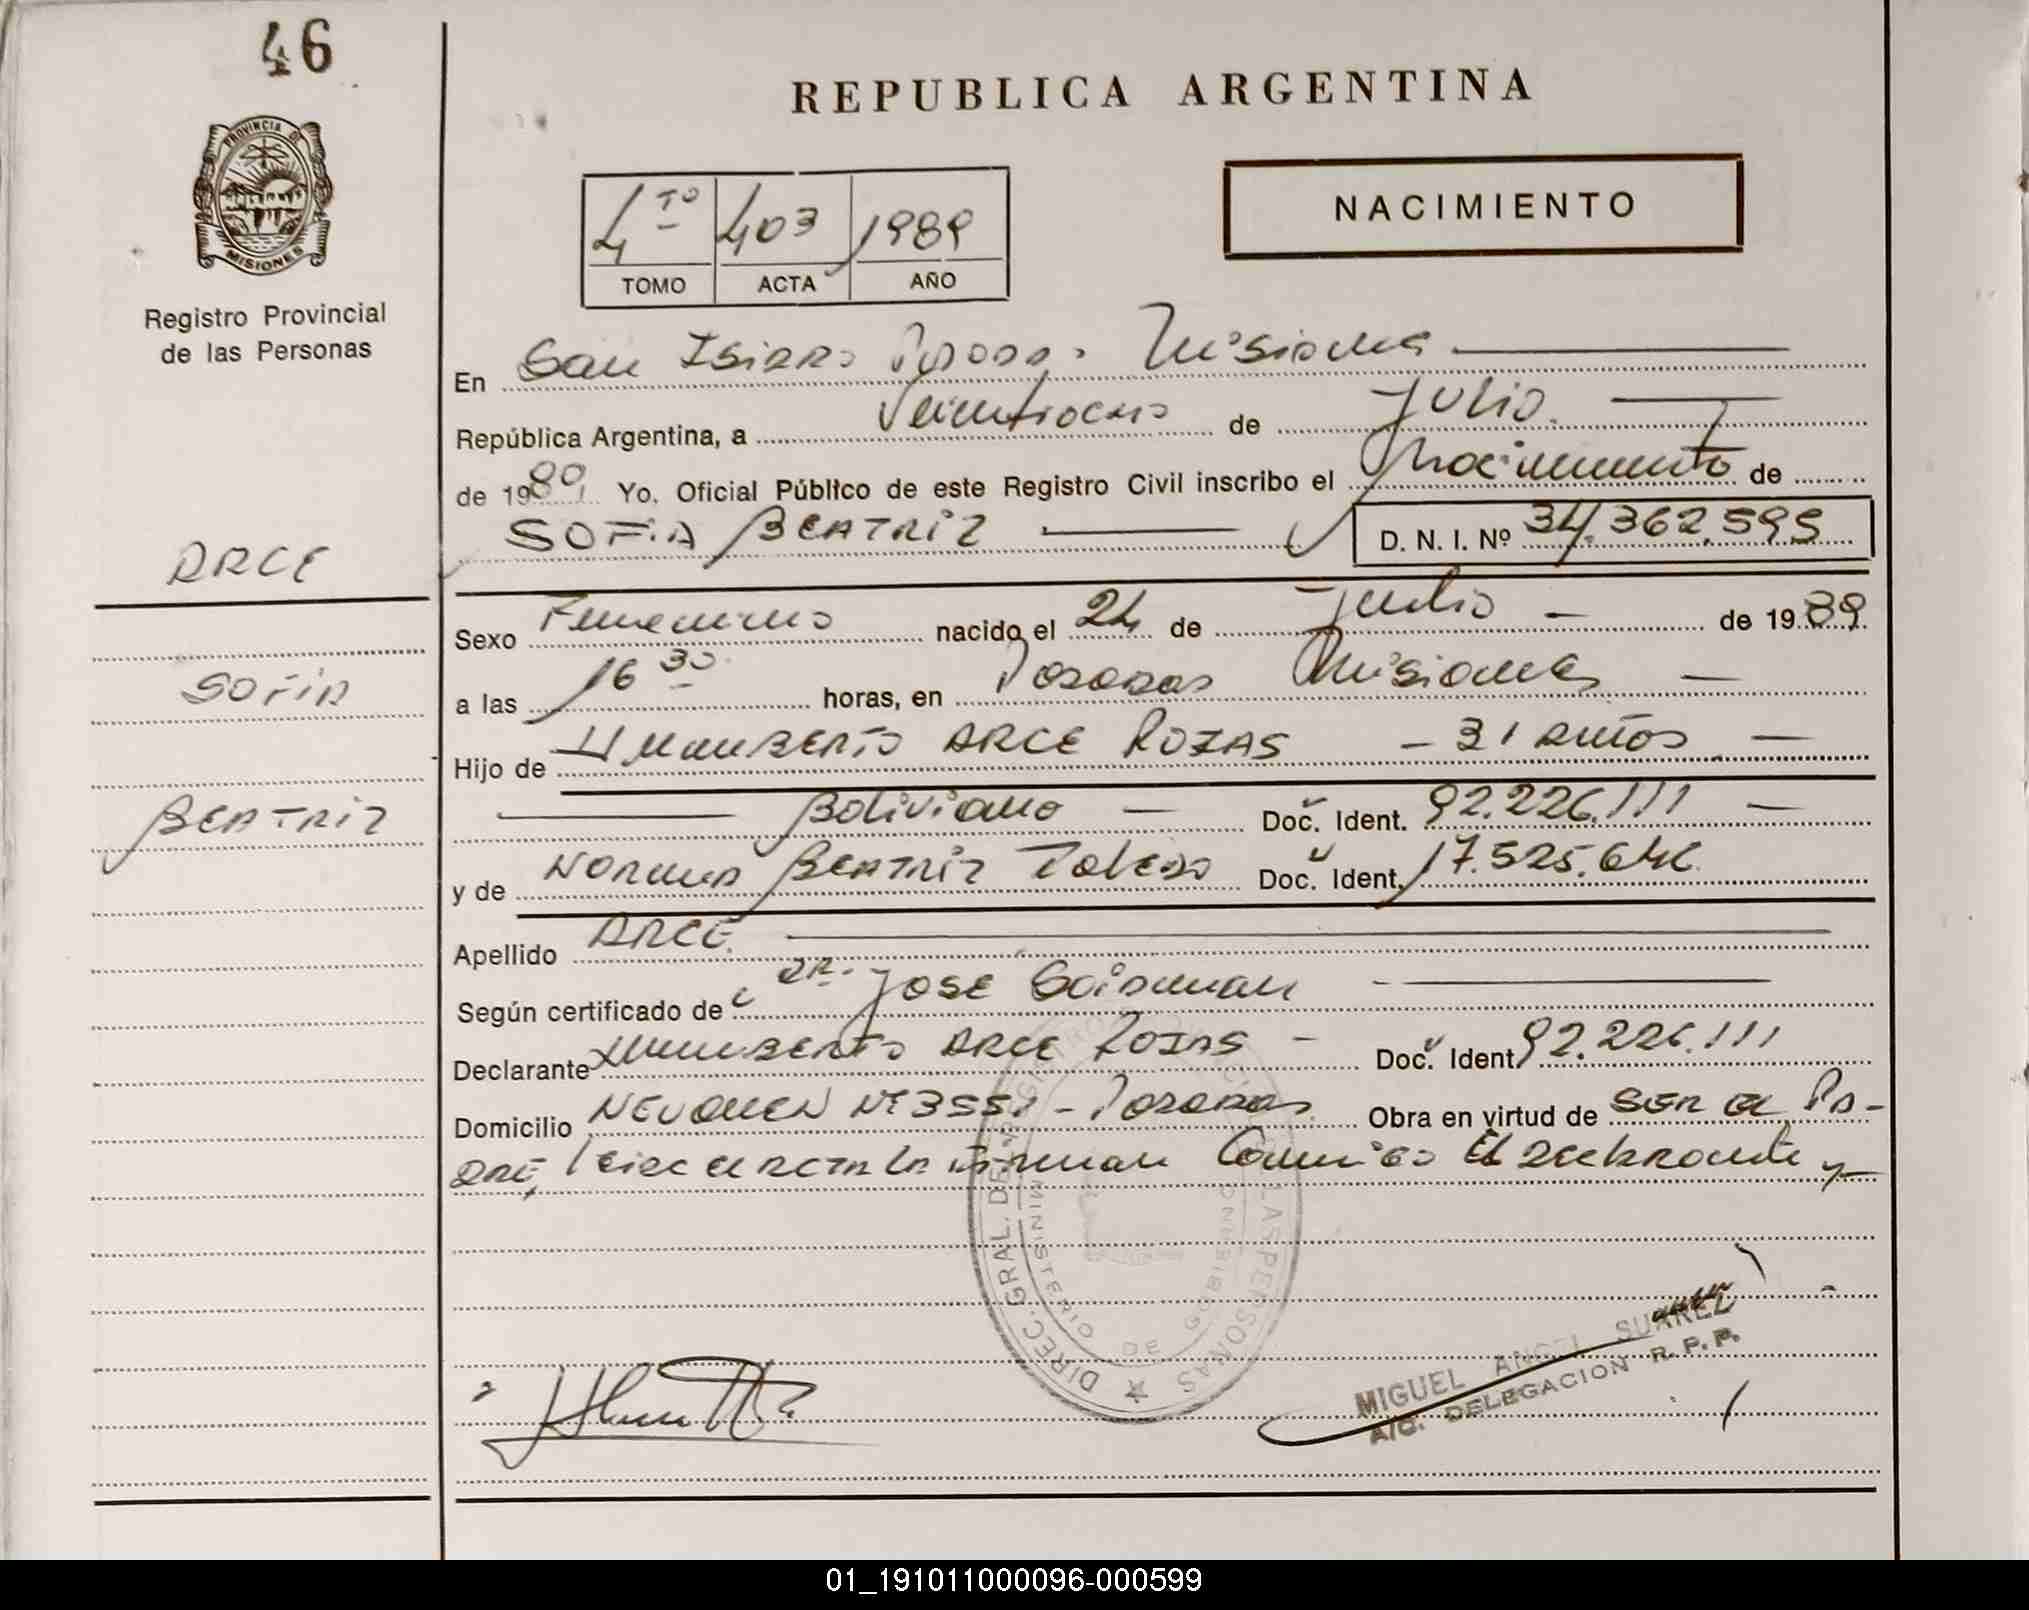 46
REPUBLICA ARGENTINA
PROVINCIA DE
MISIONES
Registro Provincial
de las Personas
4to 403 1989
TOMO ACTA AÑO
NACIMIENTO
En San Isidro Posadas Misiones
República Argentina, a Veintiocho de Julio
de 1989 Yo, Oficial Público de este Registro Civil inscribo el Nacimiento de
SOFIA BEATRIZ D. N. I. Nº 34.362.595
ARCE
SOFIA
BEATRIZ
Sexo Femenino nacido el 24 de Julio de 1989
a las 16 30 horas, en Posadas Misiones
Hijo de Humberto ARCE ROJAS - 31 años
Boliviano Doc. Ident. 92.226.111
y de Norma BEATRIZ Toledo Doc. Ident. 17.525.646
Apellido ARCE
Según certificado de Dr. JOSE
Declarante Humberto ARCE ROJAS Doc. Ident 92.226.111
Domicilio NEUQUEN Nº 3551 - Posadas Obra en virtud de SER EL PA-
DRE, leida el acta la firman Conmigo El declarante y
DIREC. GRAL. DEL REGISTRO PROVINCIAL DE LAS PERSONAS
MINISTERIO DE GOBIERNO
MIGUEL ANGEL SUAREZ
A/C. DELEGACION R. P. P.
01_191011000096-000599